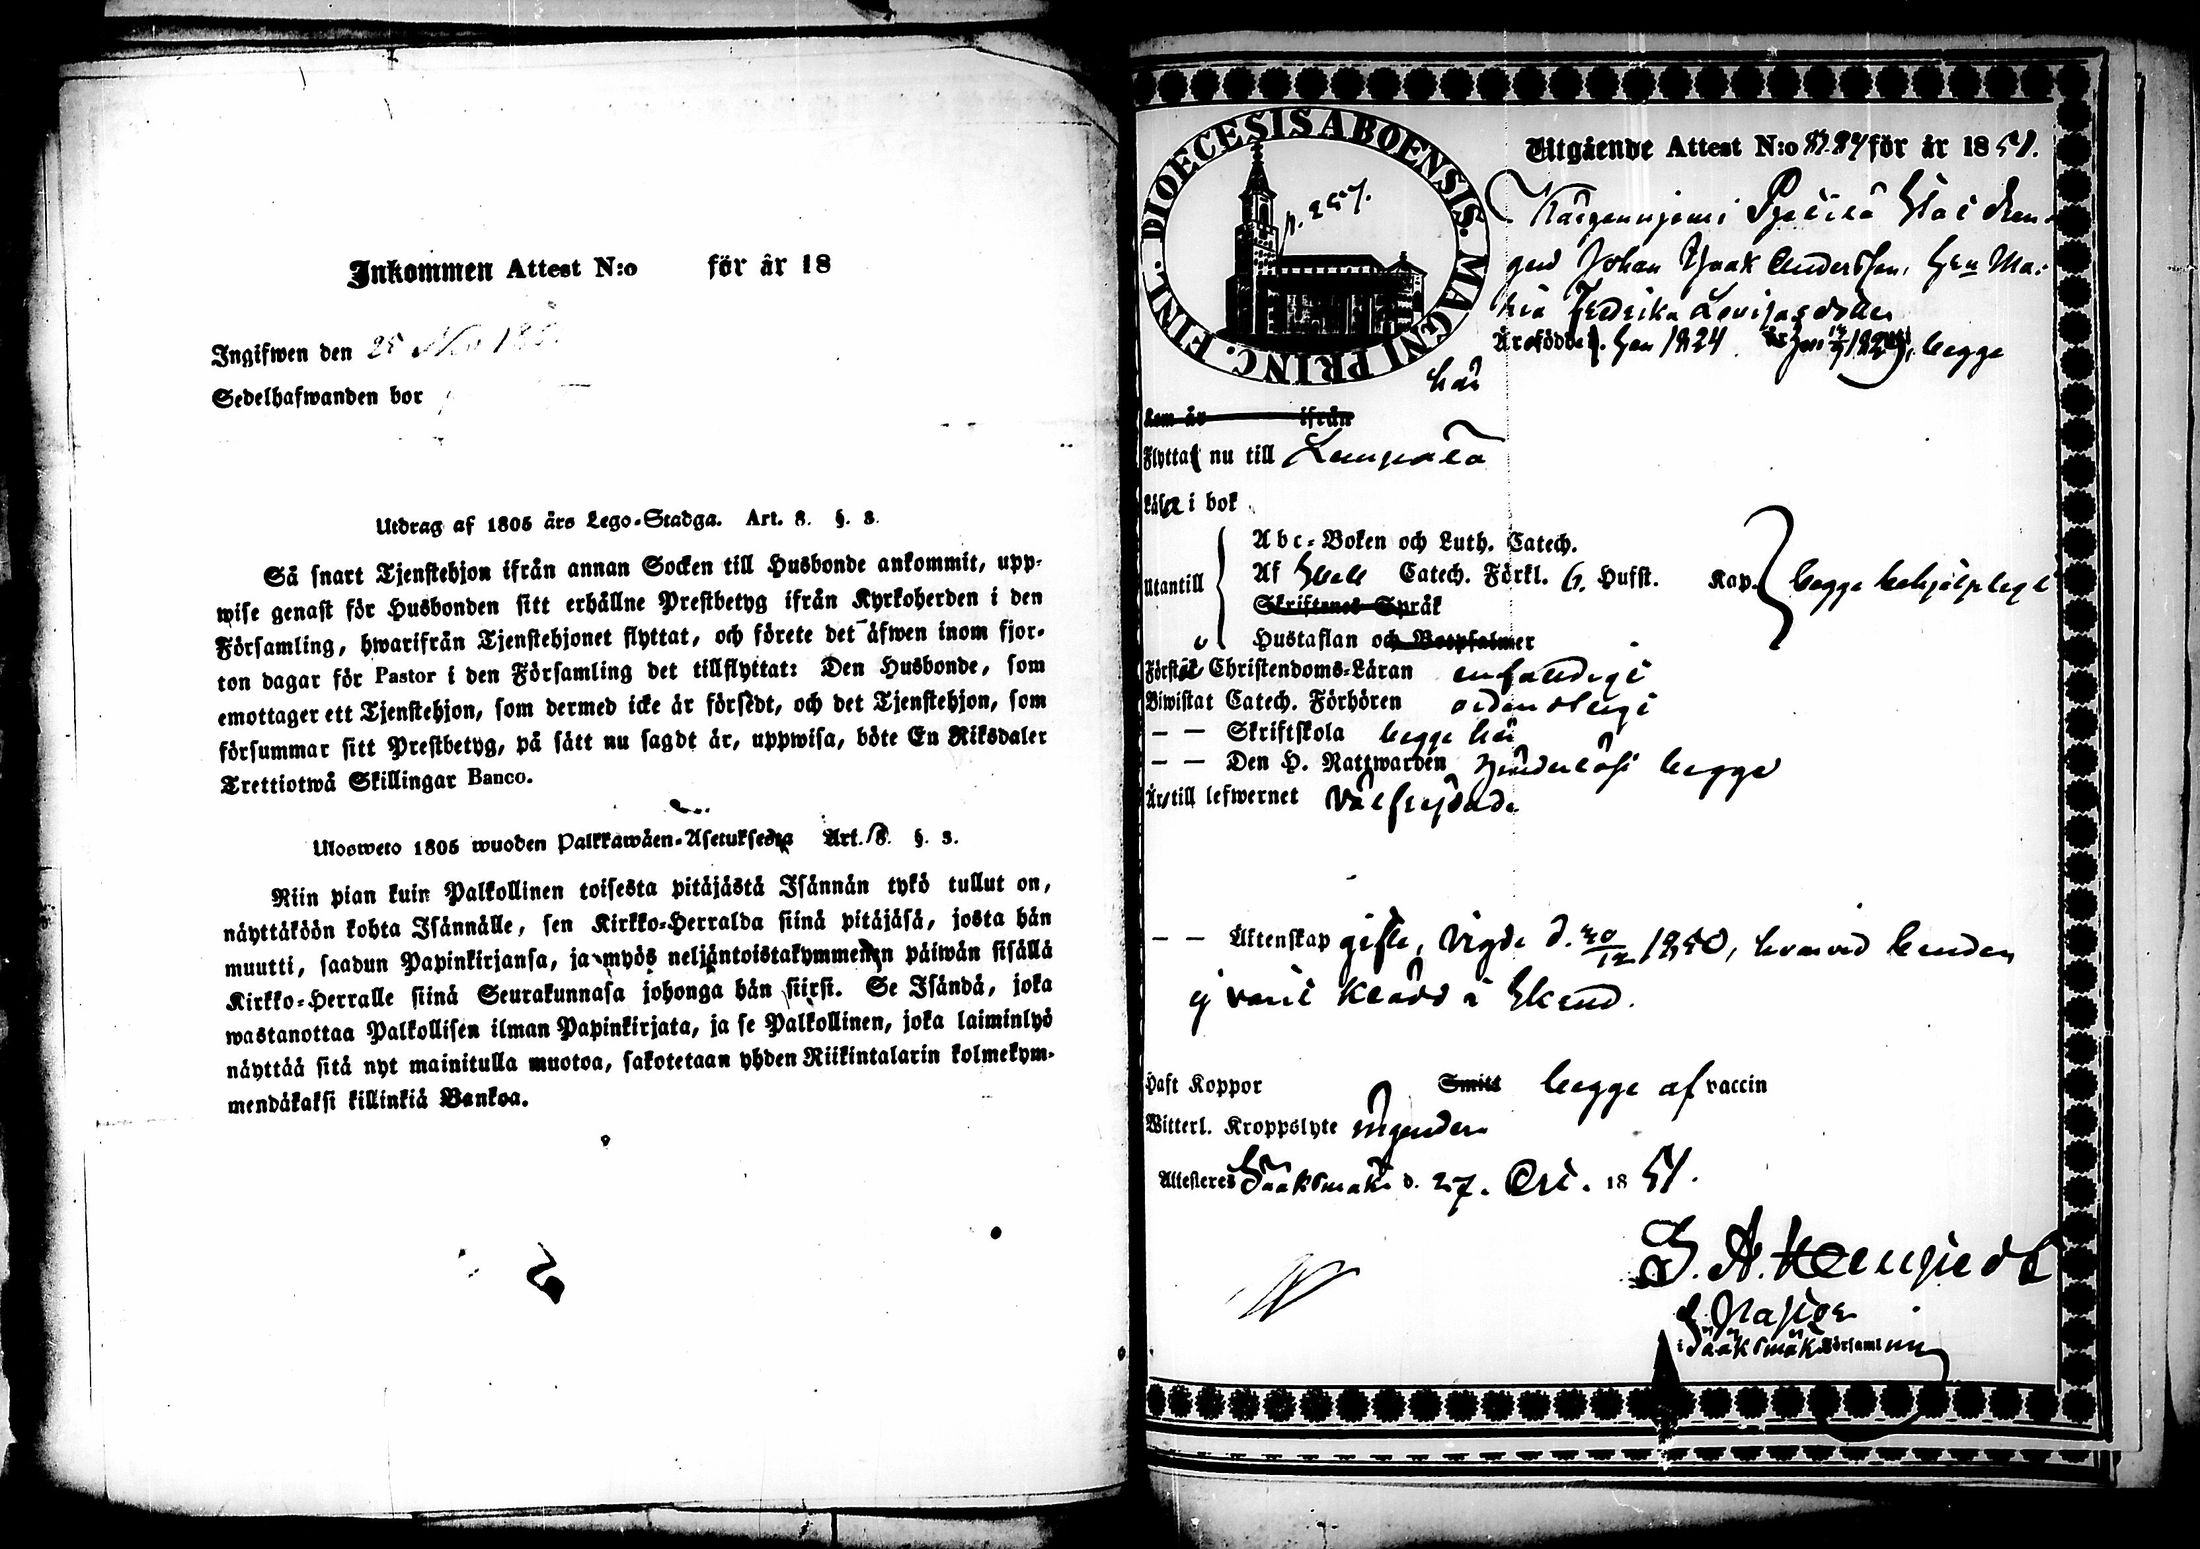 Inkommen Attest N:o för år 18
Ingifwen den 25 Nov 18
Sedelhafwanden bor
Utdrag af 1805 års Lego-Stadga. Art. 8. §. 3.
Så snart Tjenstehjon ifrån annan Socken till Husbonde ankommit, upp-
wise genast för Husbonden sitt erhållne Prestbetyg ifrån Kyrkoherden i den
Församling, hwarifrån Tjenstehjonet flyttat, och förete det äfwen inom fjor-
ton dagar för Pastor i den Församling det tillflyttat: Den Husbonde, som
emottager ett Tjenstehjon, som dermed icke är försedt, och det Tjenstehjon, som
försummar sitt Prestbetyg, på sätt nu sagdt är, uppwisa, böte En Riksdaler
Trettiotwå Skillingar Banco.
Ulosweto 1805 wuoden Palkkawäen-Asetuksesta Art. 8. §. 3.
Niin pian kuin Palkollinen toisesta pitäjästä Isännän tykö tullut on,
näyttäköön kohta Isännälle, sen Kirkko-Herralda siinä pitäjäsä, josta hän
muutti, saadun Papinkirjansa, ja myös neljäntoistakymmenen päiwän sisällä
Kirkko-Herralle siinä Seurakunnasa johonga hän siirsi. Se Isändä, joka
wastanottaa Palkollisen ilman Papinkirjata, ja se Palkollinen, joka laiminlyö
näyttää sitä nyt mainitulla muotoa, sakotetaan yhden Riikintalarin kolmekym-
mendäkaksi killinkiä Bankoa.
DIOECESIS ABOENSIS. MAGNI PRINC. FINL.
p. 257.
Utgående Attest N:o för år 1851.
Dren-
gen Johan Isaak Andersson, hu Ma-
ria Fredrika Lovisasdotter
Är födde Jan 1824 begge
här
Kom år ifrån
Flytta nu till Lempälä
Läsa i bok
Utantill
Abc-Boken och Luth. Catech.
Af Catech. Förkl. 6. Hufst. Kap. begge behjelpligt
Skriftenes Språk
Hustaflan och Botpsalmer
Förstå Christendoms-Läran enfaldigt
Biwistat Catech. Förhören ordentligt
— — Skriftskola begge här
— — Den H. Nattwarden begge
Är till lefwernet välfrejdade
— — Äktenskap gifte, vigde d. 1850, hvarvid bruden
ej varit klädd i Skrud.
Haft Koppor Smitt begge af vaccin
Witterl. Kroppslyte ingendera
Attesteras Sääksmäki d. 27. Oct. 1851.
i Sääksmäki Församling